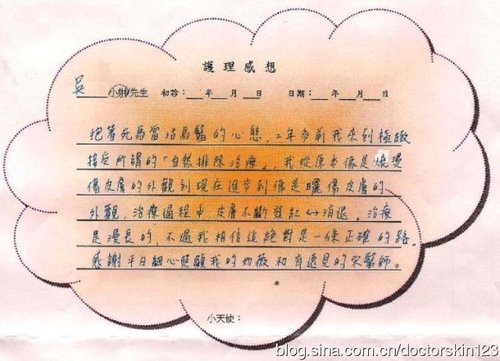 護理感想
吳 小姐/先生 初診:__年__月__日 日期:__年__月__日
抱著死馬當活馬醫的心態,二年多前我來到極緻
接受所謂的「自然排除治療」。我從原本像是燒燙
傷皮膚的外觀到現在進步到像是曬傷皮膚的
外觀,治療過程中皮膚不斷發紅↔消退。治療
是漫長的,不過我相信這絕對是一條正確的路。
感謝平日細心照顧我的灼薇和有遠見的宋醫師。
小天使:
blog.sina.com.cn/doctorskin123